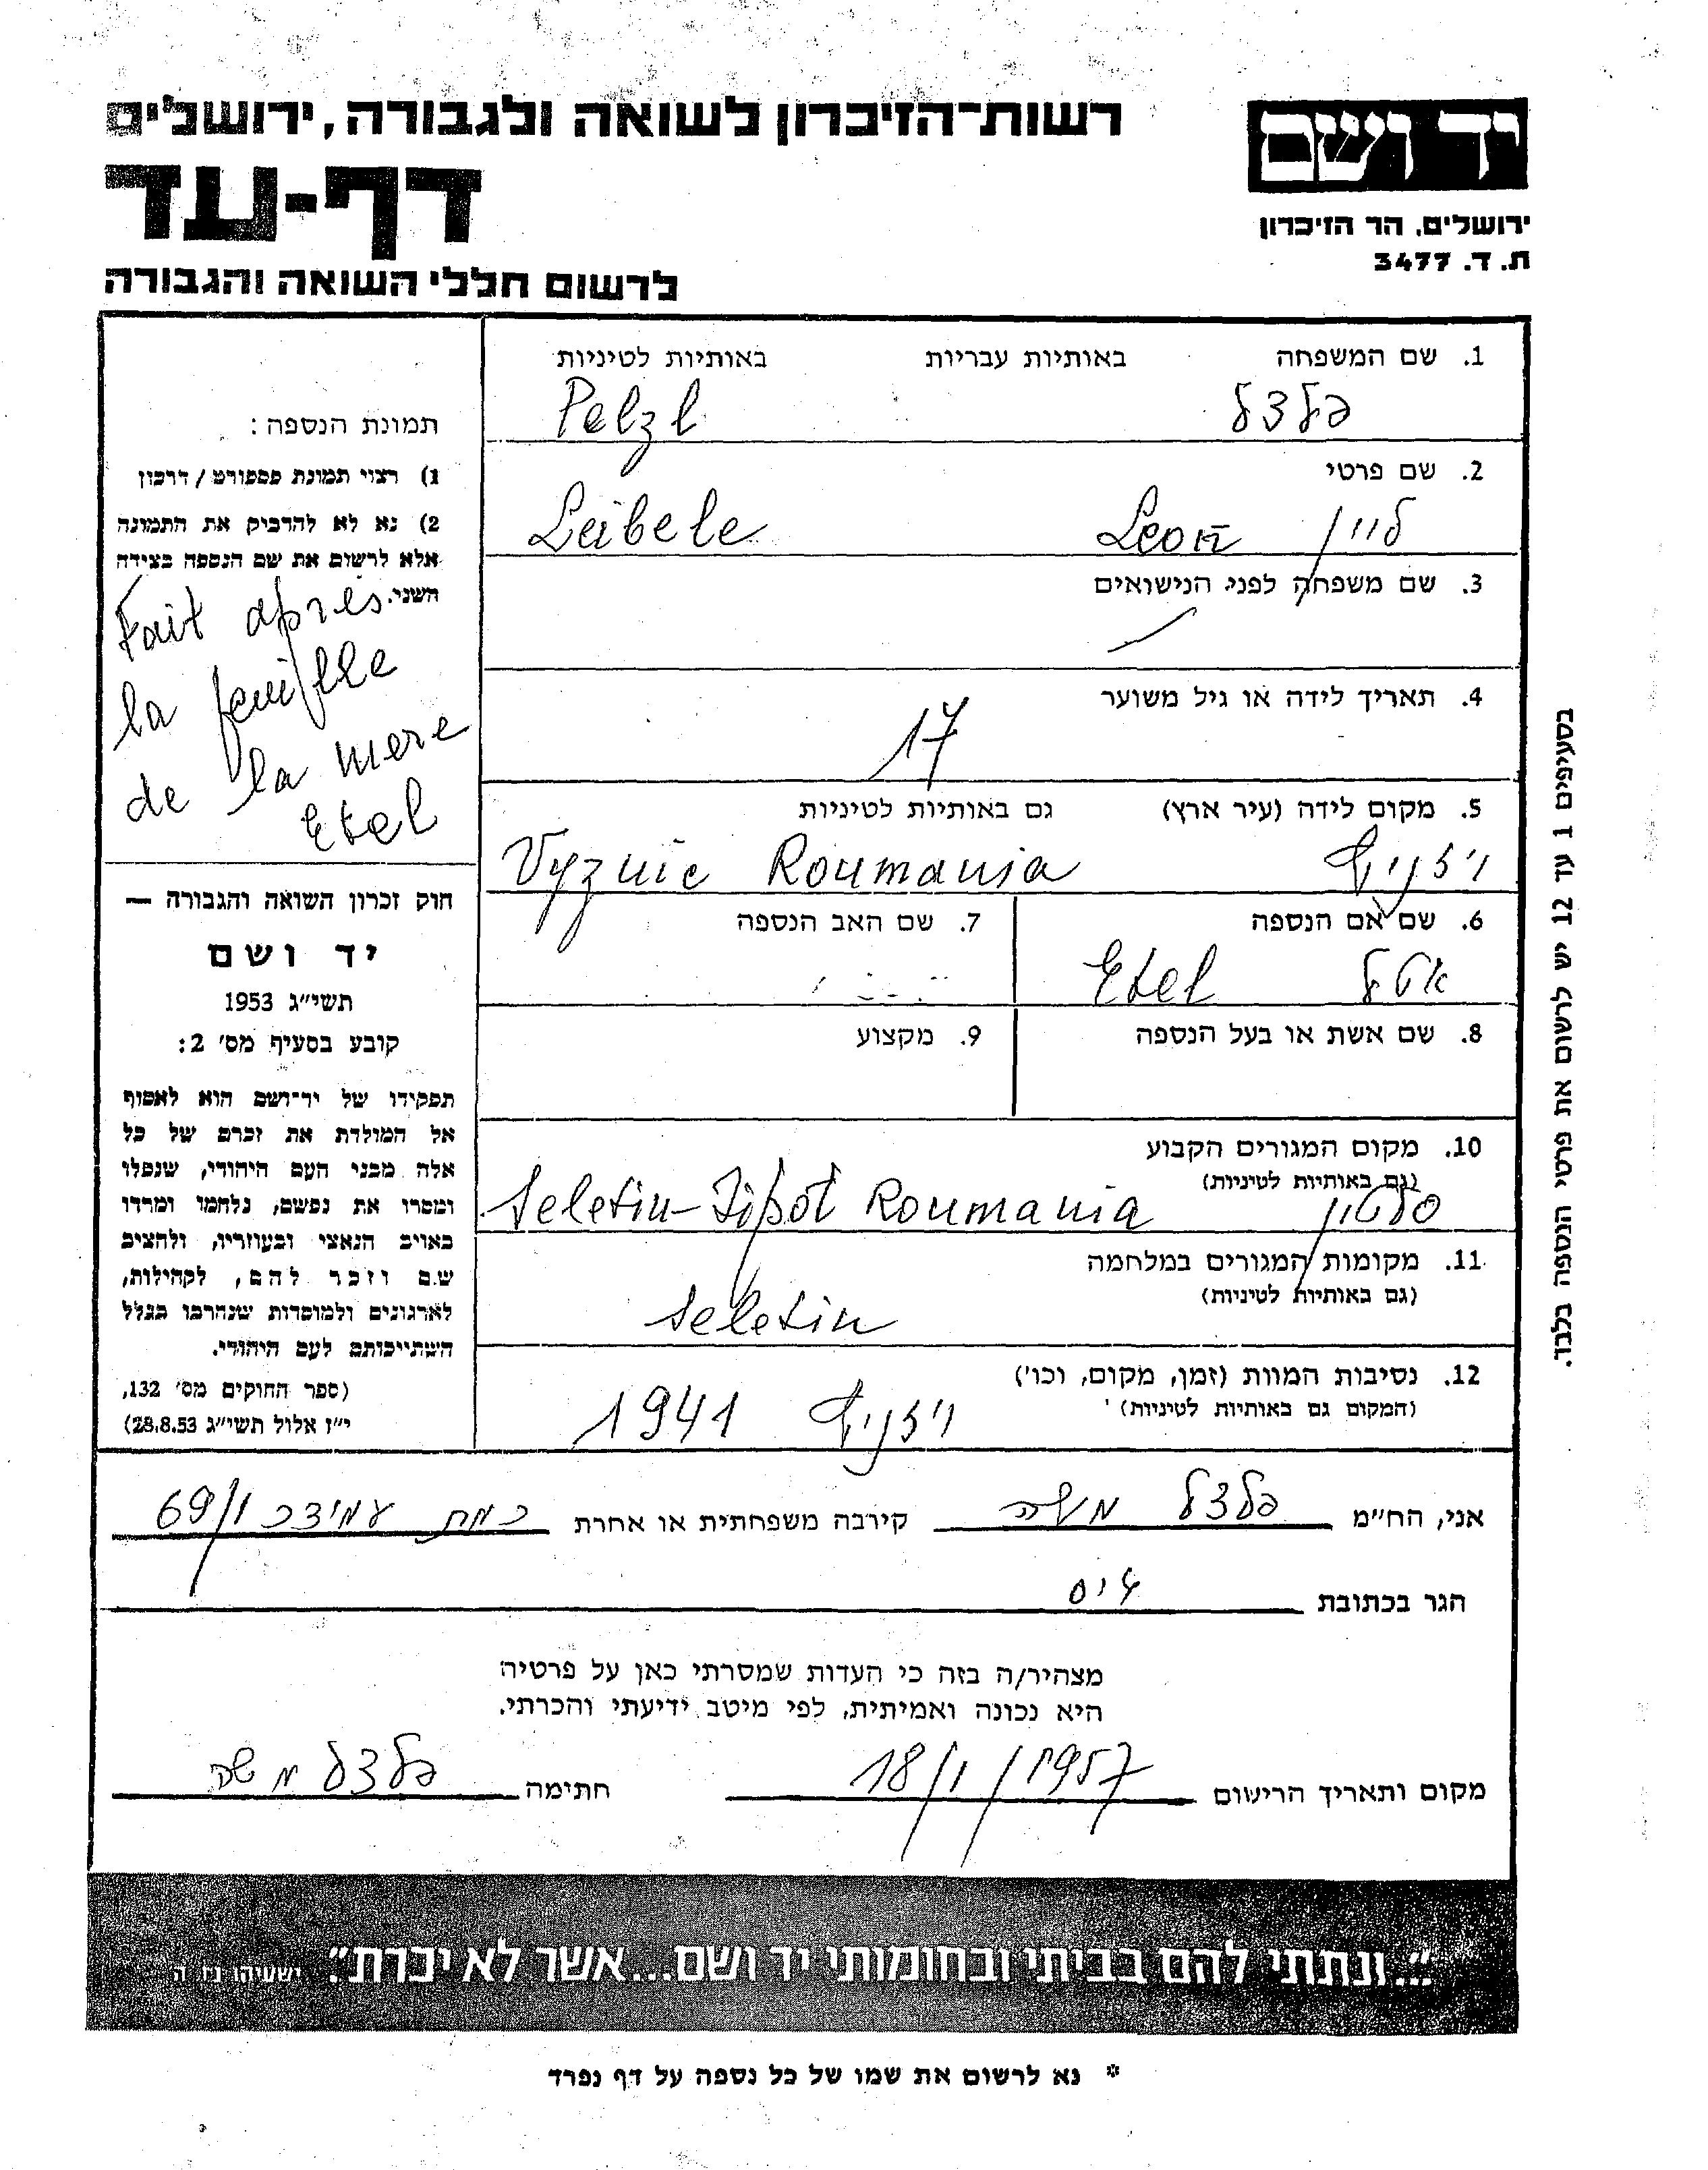 רשות־הזיכרון לשואה ולגבורה, ירושלים
דף-עד
לרשום חללי השואה והגבורה
יד ושם
ירושלים, הר הזיכרון
ת. ד. 3477
1. שם המשפחה באותיות עבריות באותיות לטיניות
פלצל Pelzl
2. שם פרטי
ליון Leon Leibele
3. שם משפחה לפני הנישואים
4. תאריך לידה או גיל משוער
17
5. מקום לידה (עיר ארץ) גם באותיות לטיניות
ויזניץ Vyznic Roumania
6. שם אם הנספה
אטל Etel
7. שם האב הנספה
8. שם אשת או בעל הנספה
9. מקצוע
10. מקום המגורים הקבוע
(גם באותיות לטיניות)
סלטין Seletin-Jipot Roumania
11. מקומות המגורים במלחמה
(גם באותיות לטיניות)
Seletin
12. נסיבות המוות (זמן, מקום, וכו')
(המקום גם באותיות לטיניות)
ויזניץ 1941
תמונת הנספה:
1) רצוי תמונת פספורט / דרכון
2) נא לא להדביק את התמונה
אלא לרשום את שם הנספה בצידה
השני.
Fait après
la feuille
de la mere
Etel
חוק זכרון השואה והגבורה —
יד ושם
תשי״ג 1953
קובע בסעיף מס׳ 2:
תפקידו של יד־ושם הוא לאסוף
אל המולדת את זכרם של כל
אלה מבני העם היהודי, שנפלו
ומסרו את נפשם, נלחמו ומרדו
באויב הנאצי ובעוזריו, ולהציב
שם וזכר להם, לקהילות,
לארגונים ולמוסדות שנחרבו בגלל
השתייכותם לעם היהודי.
(ספר החוקים מס׳ 132,
י״ז אלול תשי״ג 28.8.53)
בסעיפים 1 עד 12 יש לרשום את פרטי הנספה בלבד.
אני, הח״מ פלצל משה קירבה משפחתית או אחרת 69/1
הגר בכתובת
מצהיר/ה בזה כי העדות שמסרתי כאן על פרטיה
היא נכונה ואמיתית, לפי מיטב ידיעתי והכרתי.
מקום ותאריך הרישום 18/1/1957 חתימה פלצל משה
״...ונתתי להם בביתי ובחומותי יד ושם...אשר לא יכרת״. ישעיהו נו ה
* נא לרשום את שמו של כל נספה על דף נפרד